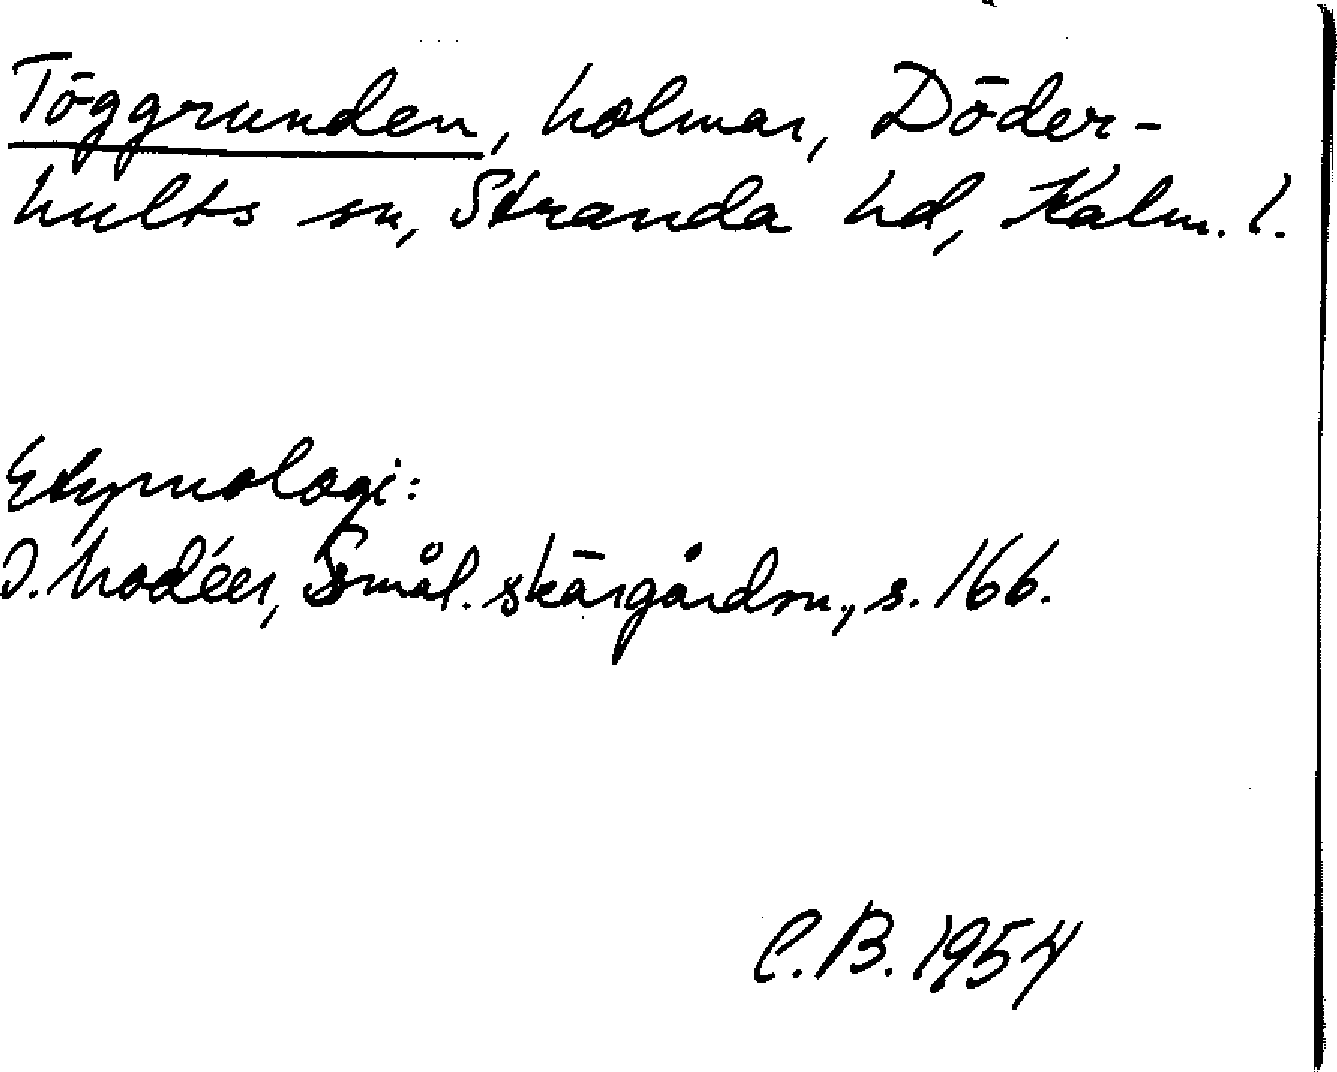 Töggrunden, holmar, Döder-
hults sn, Stranda hd, Kalm. l.
Etymologi:
I. Modéer, Smål. skärgårdsn., s. 166.
C.B. 1954